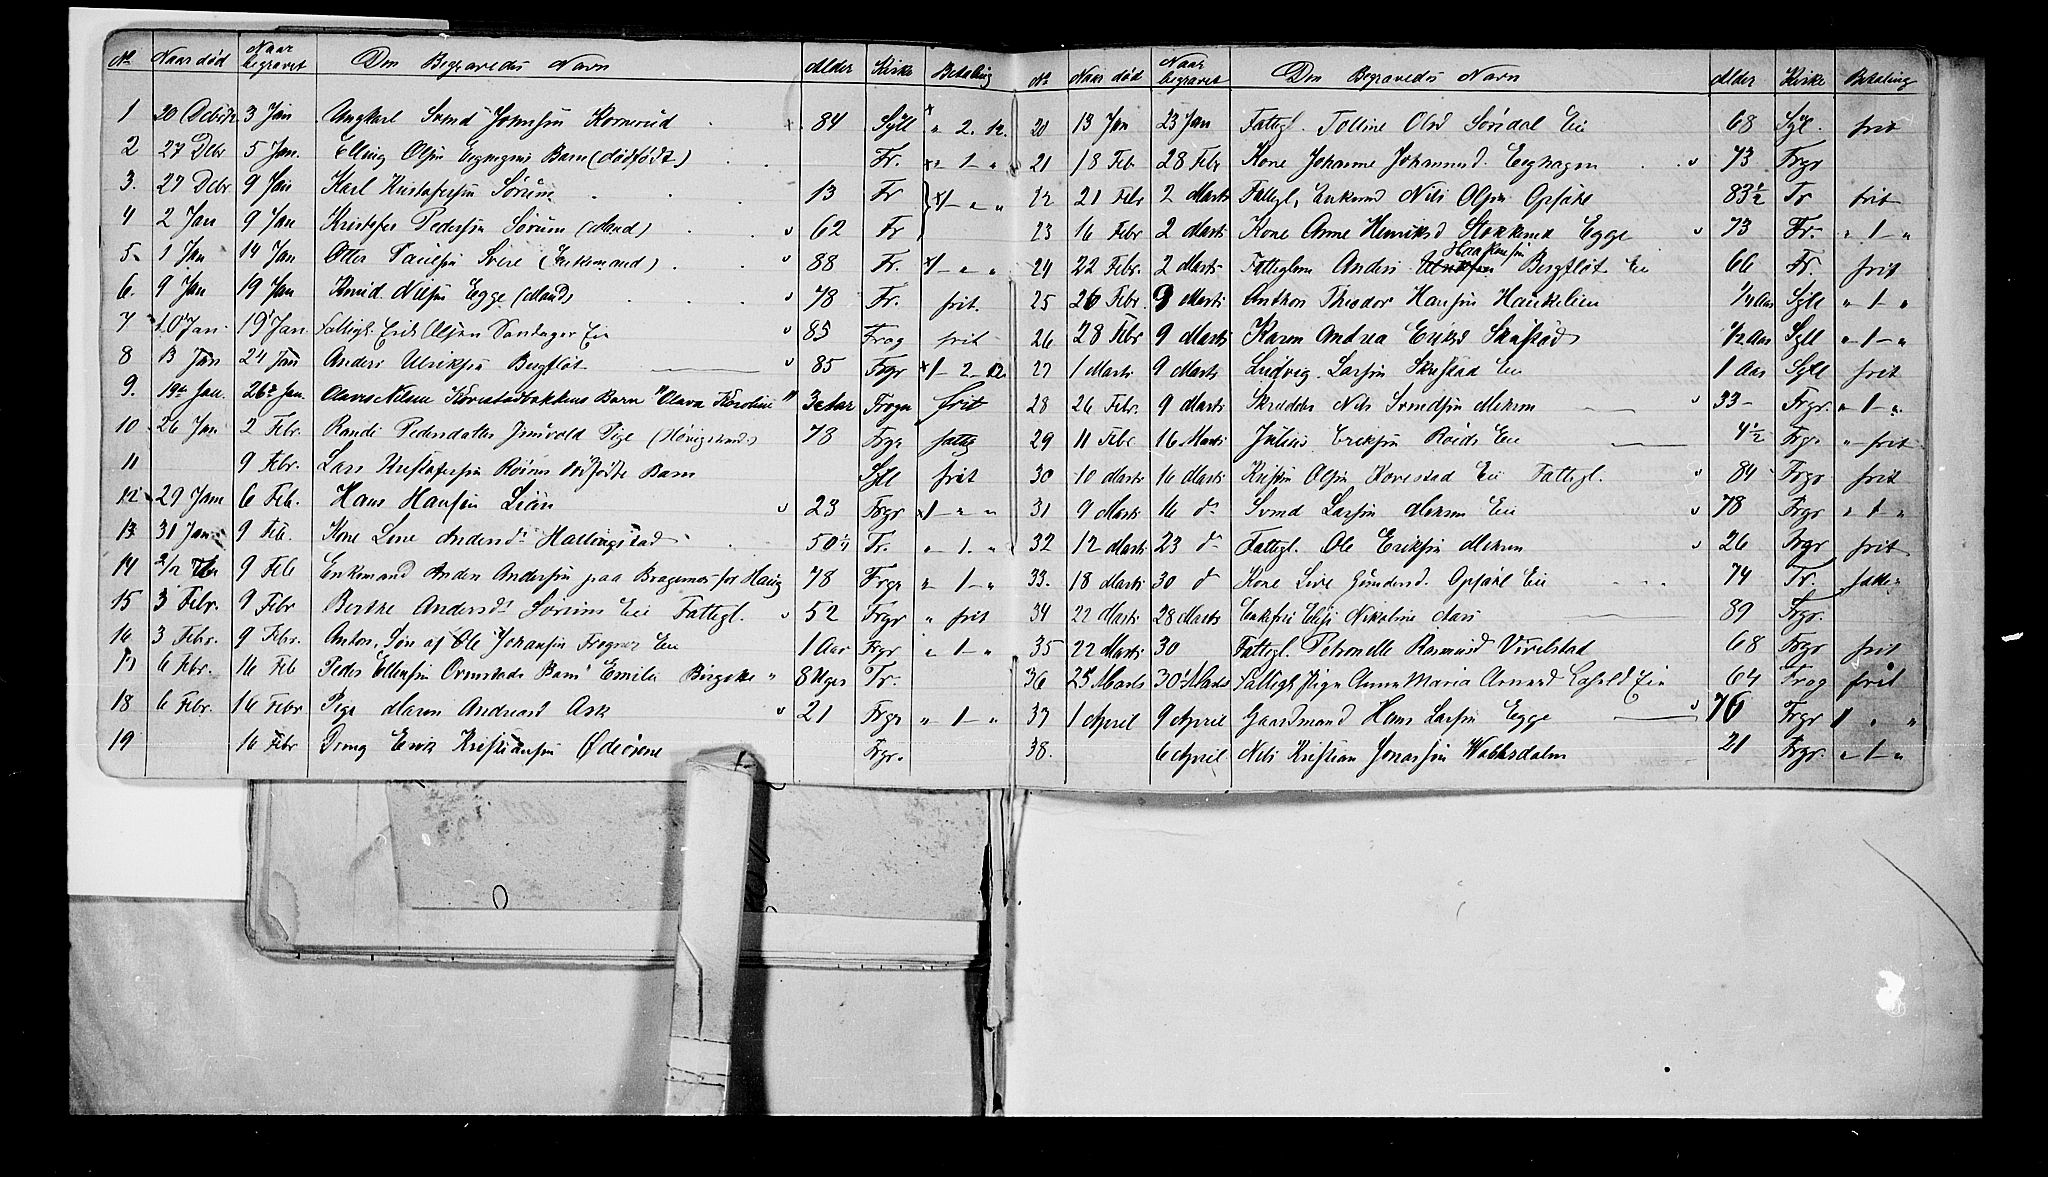 No Naar død Naar begravet Den Begravedes Navn Alder Kirke Betaling
1 20 Decbr 3 Jan Ungkarl Svend Johnsen Kornerud 84 Sgll " 2. 12.
2 27 Dcbr 5 Jan. Elling Olsen Barn (dødfødt) Fr. x " 1 - "
3. 27 Dcbr 9 Jan Karl Kristofersen Sørum 13 Fr x1 - " "
4 2 Jan 9 Jan Kristofer Pedersen Sørum (Mand) 62 Fr
5 1 Jan 14 Jan Otter Paulsen (Enkemand) 88 Fr. x1 - " "
6. 9 Jan 19 Jan Nilsen Egge (Mand) 78 Fr. frit.
7 10 Jan. 19 Jan. Fattigl. Erik Olsen Sandager Eie 85 Frog frit
8 13 Jan 24 Jan Anders Ulriksen Bergfløt 85 Frgr x1 - 2 - 12
9. 19de Jan. 26de Jan. Olaves Nilsen Barn "Olava Karoline" 3 Aar Frogn frit
10 26 Jan 2 Febr. Randi Pedersdatter Pige 78 Frgr fattg
11 9 Febr. Lars Kristofersen dødfødte Barn Sgll frit
12 29 Jan 6 Feb. Hans Hansen Lien 23 Frgr x1 - " "
13 31 Jan 9 Feb. Kone Lene Andersdr Hallingstad 50 Fr. " 1 - "
14 2/2 9 Feb Enkemand Anders Andersen paa Bragernes for Haug 78 Frgr " 1 - "
15 3 Febr. 9 Febr Berthe Andersdr Sørum Eie Fattegl. 52 Frgr " frit
16 3 Febr. 9 Febr. Anton, Søn af Ole Johansen Frogner Eie 1 Aar Frgr " 1 - "
17 6 Febr. 16 Feb Peder Ellefsen Barn "Emilie " 8 Uger Fr.
18 6 Febr. 16 Febr Pige Maren Andreasd Ask 21 Frgr " 1 - "
19 16 Febr Dreng Erik Kristiansen Frgr.
No Naar død Naar begravet Den Begravedes Navn Alder Kirke Betaling
20 13 Jan 23 Jan Fattigl. Olsd Sørsdal Eie 68 Sgl. frit
21 18 Feb 28 Feb Kone Johanne Johannesd. 73 Frgr
22 21 Febr 2 Marts Fattigl. Enkemd Nils Olsen Opsahl 83½ Fr frit
23 16 Febr 2 Marts Kone Anne Henriksd Stokkerud Egge 73 Fr. " 1 - "
Haakensen
24 22 Febr. 2 Marts Fattiglem Anders Ulriksen Bergfløt Eie 66 Fr. frit
25 26 Febr. 9 Marts Anthon Theodor Hansen 1/4 Aar Sgll " 1 - "
26 28 Febr 9 Marts Karen Andrea Eriksd 1/2 Aar Sgll " 1 - "
27 1 Marts 9 Marts Ludvig Larsen Eie 1 Aar Sgll frit
28 26 Febr. 9 Marts Skrædder Nils Svendsen Meheren 33 - Frgr. " 1 - "
29 11 Febr 16 Marts Julius Eriksen Eie 4½ Frgr " frit
30 10 Marts 16 Marts Kristen Olsen Horestad Eie Fattegl. 84 Frgr frit
31 9 Marts 16 do Svend Larsen Meheren Eie 78 Frgr " 1 - "
32 12 Marts 23 do Fattegl. Ole Eriksen Meheren 26 Frgr frit
33. 18 Marts 30 do Kone Live Gundersd. Opsahl Eie 74 Fr.
34 22 Marts 28 Marts Enkefru Elise Nikoline 89 Frgr.
35 22 Marts 30 Fattegl. Petronelle Rasmusd 68 Frgr frit
36 25 Marts 30 Marts Fattigl. Pige Anna Maria Eie 64 Frog frit
37 1 April 9 April Gaardmand Hans Larsen Egge 76 Frgr 1 " "
38. 6 April Nils Kristian Jonassen 21 Frgr. " 1 - "